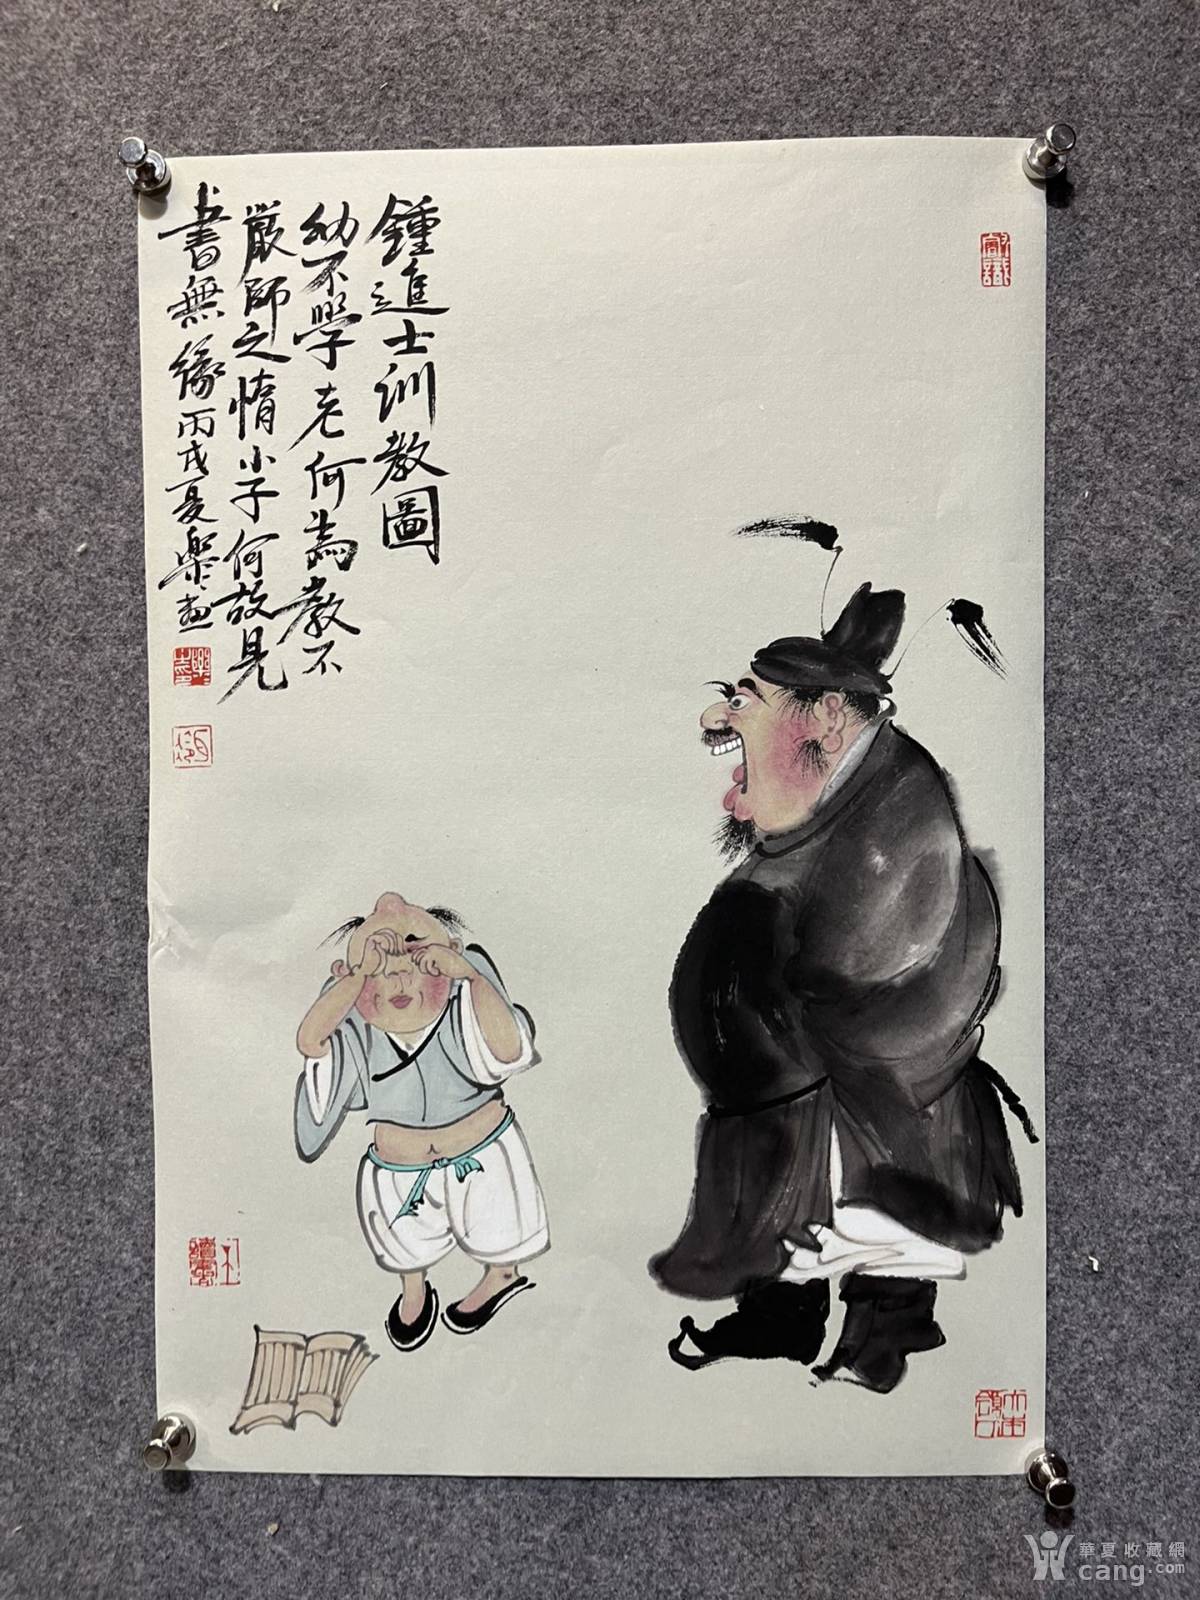 鍾進士訓教圖
幼不學老何為教不
嚴師之惰小子何故見
書無緣丙戌夏樂樂畫
華夏收藏網
cang.com